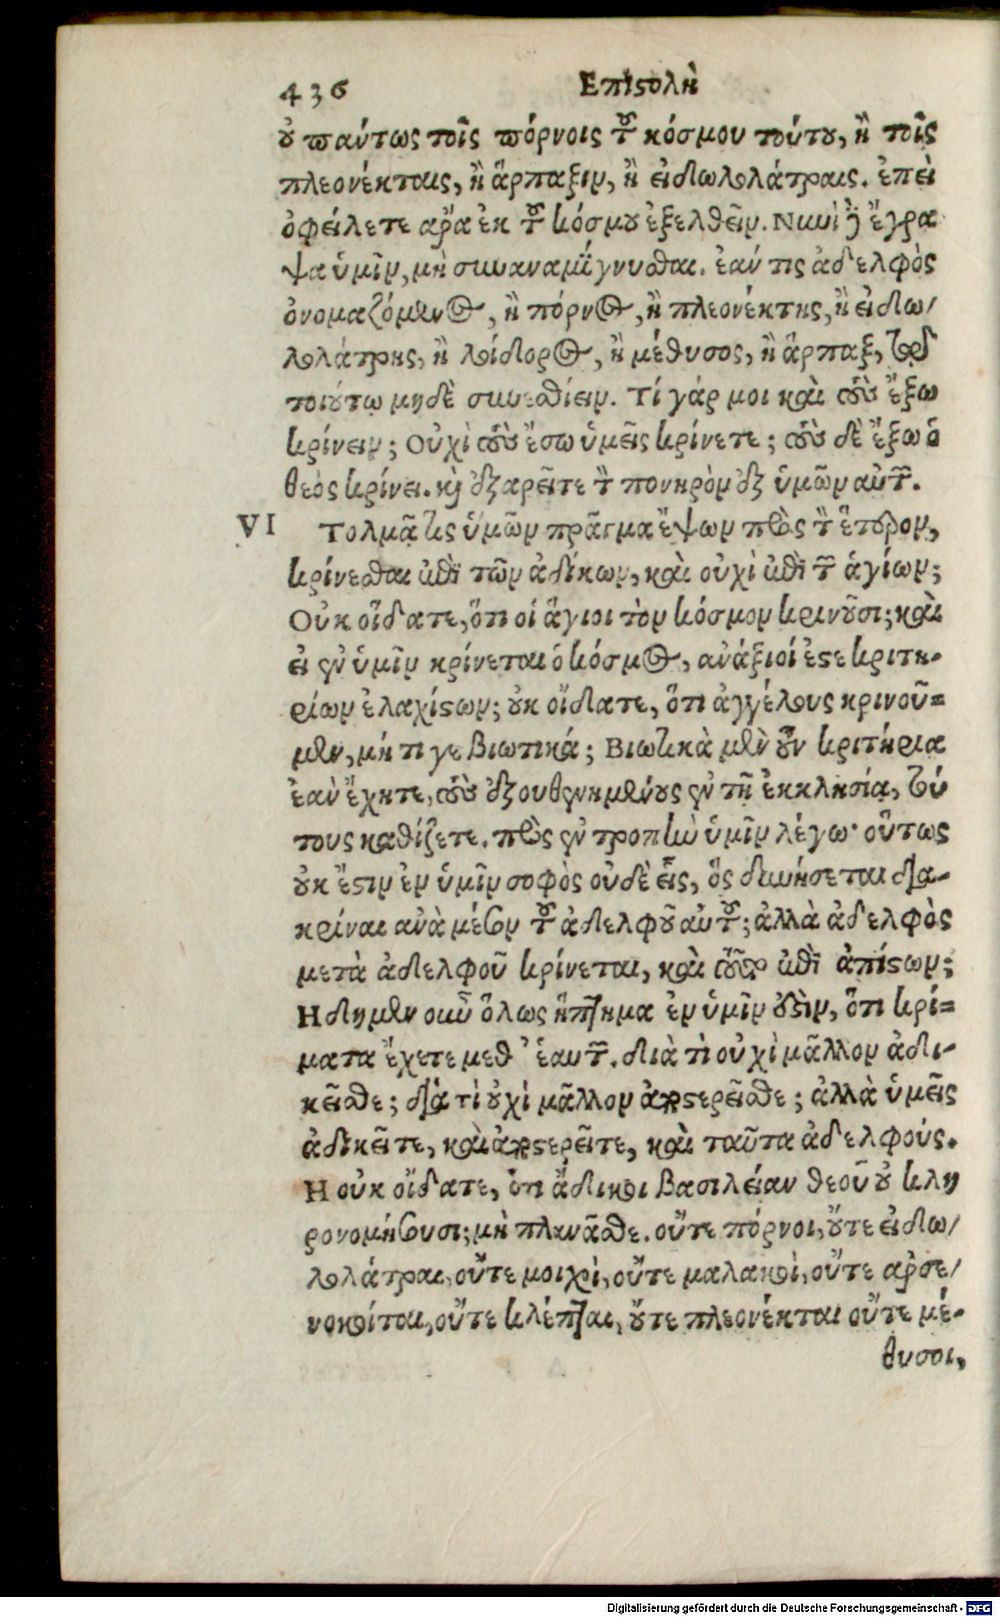 436 Επιϛολὴ
ȣ παύτως τοῖς πόρνοις τȣ͂ κόσμου τούτȣ, ἢ τοῖς
πλεονέκταις, ἢ ἅρπαξιν, ἢ ειδωλολάτραις. ἐπεὶ
ὀφείλετε αῤα ἐκ τȣ͂ κόσμȣ ἐξελθεῖν. Νυνὶ δὲ ἔγρα
ψα ὑμῖν, μὴ συναναμίγνυσθαι. ἐάν τις ἀδελφὸς
ὀνομαζόμενος, ἢ πόρνος, ἢ πλεονέκτης, ἢ εἰδω/
λολάτρης, ἢ λοίδορος, ἢ μέθυσος, ἢ ἅρπαξ, τῷ
τοιȣ́τῳ μηδὲ συνεσθίειν. Τί γάρ μοι καὶ τοὺς ἔξω
κρίνειν; Οὐχὶ τοὺς ἔσω ὑμεῖς κρίνετε; τοὺς δὲ ἔξω ὁ
θεὸς κρίνει. καὶ ἐξαρεῖτε τὸν πονηρὸν ἐξ ὑμῶν αὐτῶν.
VI Τολμᾷ τις ὑμῶν πρᾶγμα ἔχων πρὸς τὸν ἕτερον,
κρίνεσθαι ἐπὶ τῶν ἀδίκων, καὶ οὐχὶ ἐπὶ τῶν ἁγίων;
Οὐκ οἴδατε, ὅτι οἱ ἅγιοι τὸν κόσμον κρινȣ͂σι; καὶ
ει ἐν ὑμῖν κρίνεται ὁ κόσμος, ανάξιοί ἐϛε κριτη-
ρίων ἐλαχίϛων; ȣκ οἴδατε, ὅτι ἀγγέλους κρινοῦ=
μεν, μή τι γε βιωτικά; Βιωτικὰ μὲν ȣ͂ν κριτήρια
ἐὰν ἔχητε, τοὺς ἐξουθενημένȣς ἐν τῇ ἐκκλησίᾳ, τού
τους καθίζετε. πρὸς ἐντροπὴν ὑμῖν λέγω· οὕτως
ȣκ ἔϛιν ἐν ὑμῖν σοφὸς οὐδὲ εἷς, ὃς δυνήσεται δια-
κρίναι ανὰ μέσον τȣ͂ ἀδελφȣ͂ αὐτȣ͂; ἀλλὰ ἀδελφὸς
μετὰ ἀδελφοῦ κρίνεται, καὶ τοῦτο ἐπὶ ἀπίϛων;
Ηδη μὲν οὖν ὅλως ἥττημα ἐν ὑμῖν ἐϛὶν, ὅτι κρί=
ματα ἔχετε μεθ᾽ ἑαυτῶν. διὰ τὶ οὐχὶ μᾶλλον ἀδι-
κεῖσθε; διὰ τὶ ȣχὶ μᾶλλον ἀποϛερεῖσθε; ἀλλὰ ὑμεῖς
ἀδικεῖτε, καὶ ἀποϛερεῖτε, καὶ ταῦτα ἀδελφούς.
Η οὐκ οἴδατε, ὅτι ἄδικοι βασιλείαν θεοῦ ȣ κλη
ρονομήσουσι; μὴ πλανᾶσθε. οὔτε πόρνοι, ȣ́τε εἰδω/
λολάτραι, οὔτε μοιχοὶ, οὔτε μαλακοὶ, οὔτε αρσε/
νοκοίται, οὔτε κλέπται, ȣ́τε πλεονέκται οὔτε μέ-
θυσοι,
Digitalisierung gefördert durch die Deutsche Forschungsgemeinschaft - DFG